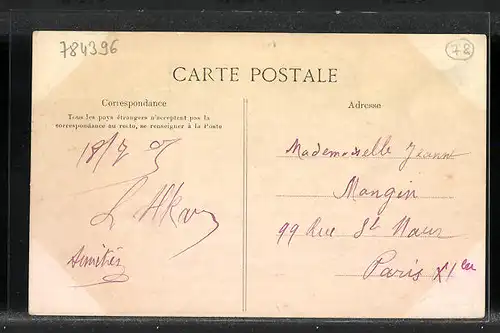 784396
78
CARTE POSTALE
Correspondance
Tous les pays étrangers n'acceptent pas la
correspondance au recto, se renseigner à la Poste
Adresse
18/7 05
Amitiés
Mademoiselle Jeanne
Mangin
99 Rue St Maur
Paris XIeme